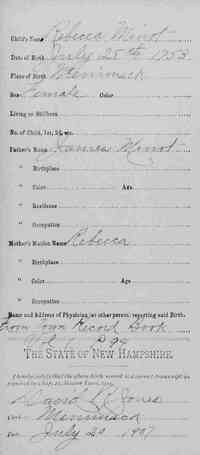 Child's Name Rebecca Minot
Date of Birth July 25th 1753
Place of Birth Merrimack
Sex Female Color
Living or Stillborn
No. of Child, 1st, 2d, etc.
Father's Name James Minot
" Birthplace
" Color Age
" Residence
" Occupation
Mother's Maiden Name Rebecca
" Birthplace
" Color Age
" Occupation
Name and Address of Physician (or other person) reporting said Birth.
From Town Record Book
Vol 1 P 99
THE STATE OF NEW HAMPSHIRE.
I hereby certify that the above birth record is a correct transcript as
David L Jones
Merrimack
July 20 1907